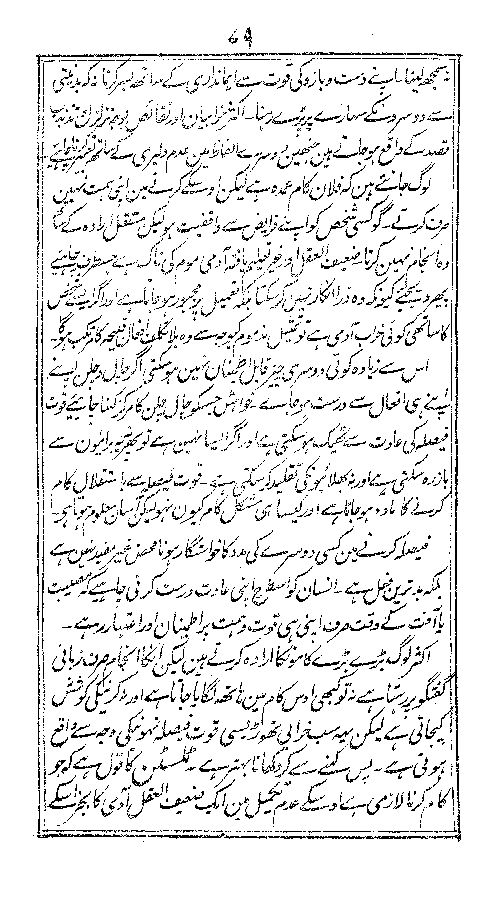 ۶۹
سمجھ لینا۔ اپنے دست و بازو کی قوت سے ایمانداری کے ساتھ بسر کرنا نہ کہ بدنیتی
سے دوسرونکے سہارے پر پڑے رہنا۔ اکثر خرابیان اور نقائص بوجہ تزلزل و تذبذب
قصد کے واقع ہو جاتے ہین جنھین دوسرے الفاظ مین عدم دلیری کے ساتھ تعبیر کرنا چاہیے
لوگ جانتے ہین کہ فلان کام عمدہ ہے لیکن اوسکے کرنے مین اپنی ہمت نہین
صرف کرتے۔ گو کسی شخص کو اپنے فرایض سے واقفیت ہو لیکن مستقل ارادہ کے ساتھ
وہ انجام نہین کرتا۔ ضعیف العقل اور غیر تعلیم یافتہ آدمی موم کی ناک ہے جسطرف چاہیے
پھیر دیجئے کیونکہ وہ ذرا انکار نہین کر سکتا بلکہ تعمیل پر مجبور ہو جاتا ہے اور اگر ایسے شخص
کا ساتھی کوئی خراب آدمی ہے تو تمثیل مذموم کیوجہ سے وہ بلا تکلف افعال قبیحہ کا مرتکب ہوگا۔
اس سے زیادہ کوئی دوسری چیز قابل اطمینان نہین ہو سکتی اگر چال و چلن اپنے
اپنے ہی افعال سے درست ہو جاے۔ خواہش جسکو چال چلن کا مرکز کہنا چاہیے قوت
فیصلہ کی عادت سے ٹھیک ہو سکتی ہے اور اگر ایسا نہین ہے تو پھر نہ برائیون سے
باز رہ سکتی ہے اور نہ بھلائیونکی تقلید کر سکتی ہے۔ قوت فیصلہ سے باستقلال کام
کرنے کا مادہ ہو جاتا ہے اور کیسا ہی مشکل کام کیون نہو لیکن آسان معلوم ہوتا ہو۔
فیصلہ کرنے مین کسی دوسرے کی مدد کا خواستگار ہونا محض غیر مفید نہین ہے
بلکہ بدترین فعل ہے۔ انسان کو اسطرح اپنی عادت درست کرنی چاہیے کہ مصیبت
یا آفت کے وقت صرف اپنی ہی قوت و ہمت پر اطمینان اور اعتبار رہے۔
اکثر لوگ بڑے بڑے کامونکا ارادہ کرتے ہین لیکن انکا انجام صرف زبانی
گفتگو پر رہتا ہے نہ تو کبھی اوس کام مین ہاتھ لگایا جاتا ہے اور نہ کرنیکی کوشش
کیجاتی ہے لیکن یہہ سب خرابی تھوڑی سی قوت فیصلہ نہونیکی وجہ سے واقع
ہوتی ہے۔ پس کہنے سے کر دکھانا بہتر ہے۔ ٹلٹسن کا قول ہے کہ جو
کام کرنا لازمی ہے اوسکے عدم تکمیل مین ایک ضعیف العقل آدمی کا بجز اسکے